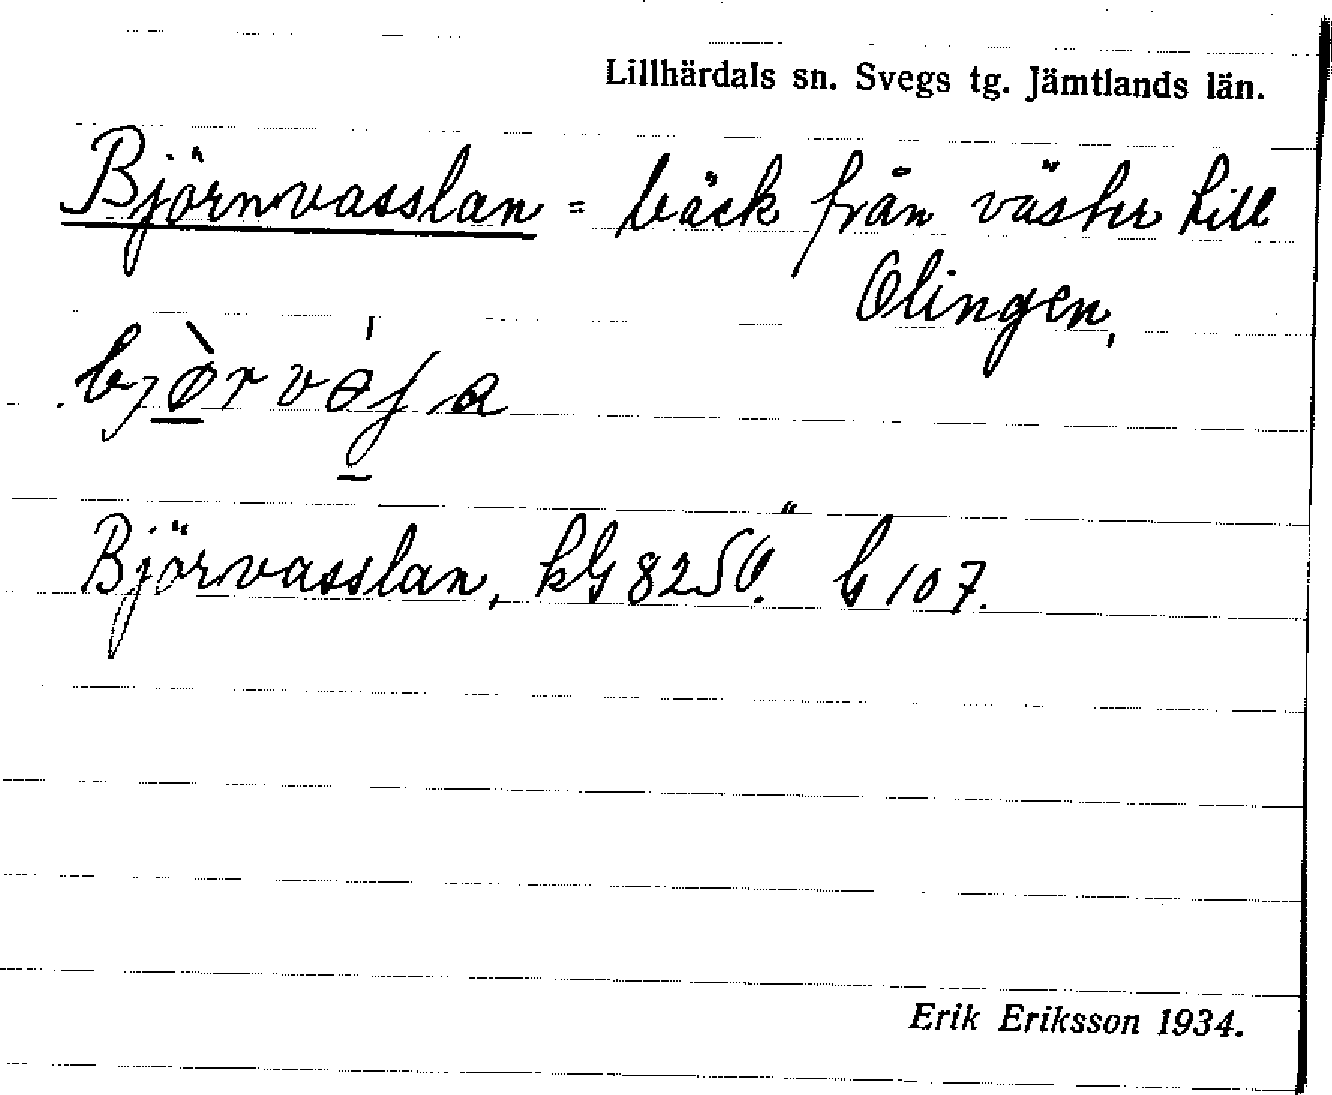 Lillhärdals sn. Svegs tg. Jämtlands län.
Björnvasslan = bäck från väster till
Olingen,
Björvasslan, kG 8250. b 107.
Erik Eriksson 1934.